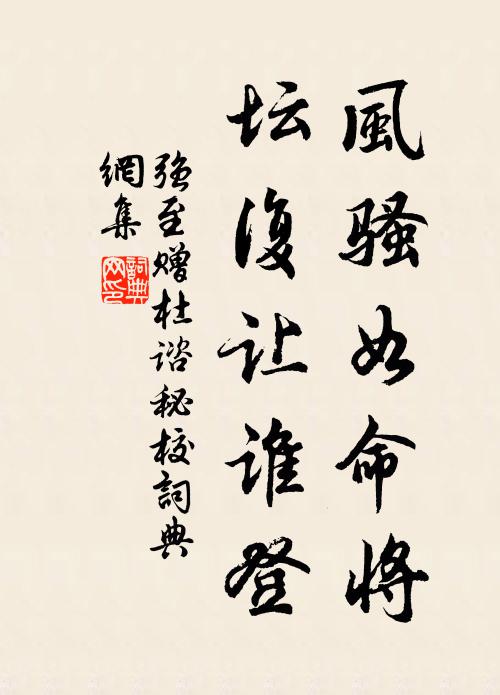 風骚如命将
坛復让谁登
强至赠杜谘秘校詞典
網集
詞典
网印